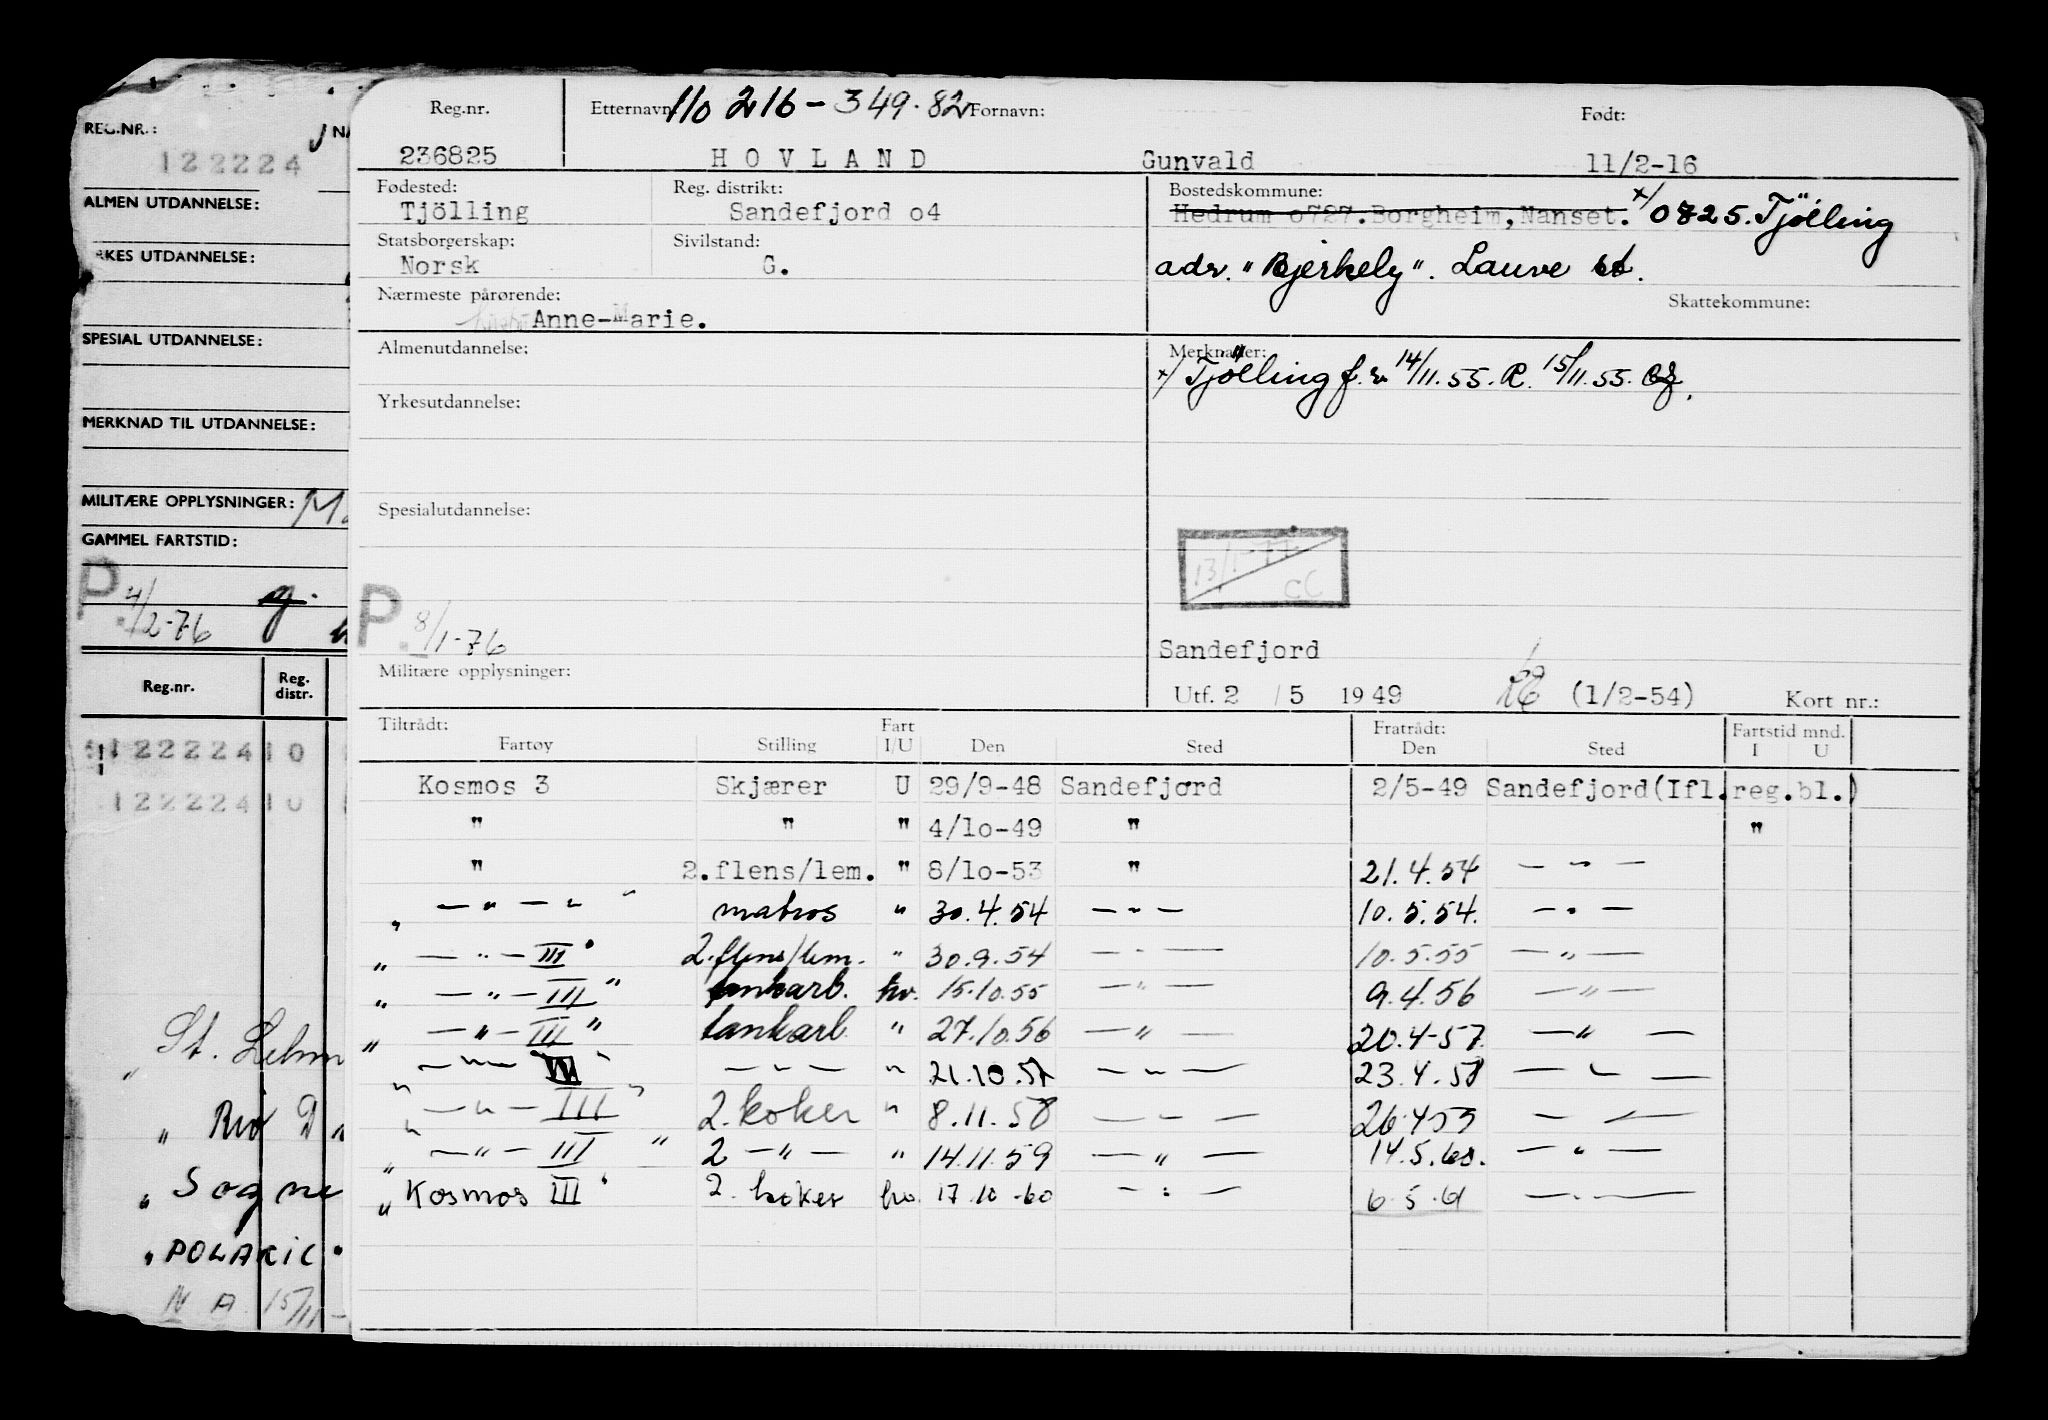 REG.NR.:
122224
ALMEN UTDANNELSE:
KES UTDANNELSE:
SPESIAL UTDANNELSE:
MERKNAD TIL UTDANNELSE:
MILITÆRE OPPLYSNINGER:
GAMMEL FARTSTID:
P. 4/2-76
Reg.nr. Reg. distr.
122224 10
122224 10
„ St.
„ Rio D
„ Sogne
„ POLARIC
N A 15/11-
Reg.nr. Etternavn 110 216 - 349.82 Fornavn: Født:
236825 HOVLAND Gunvald 11/2-16
Fødested: Reg. distrikt: Bostedskommune:
Tjölling Sandefjord o4 Hedrum o727. Borgheim, Nanset. x/ 0725. Tjölling
Statsborgerskap: Sivilstand:
Norsk G. adr. "Bjerkely". Lauve st.
Nærmeste pårørende: Skattekommune:
Anne-Marie.
Almenutdannelse: Merknader:
x/ Tjölling f. r. 14/11.55. R. 15/11.55.
Yrkesutdannelse:
Spesialutdannelse:
13/1-77
CC
P. 8/1-76
Sandefjord
Militære opplysninger:
Utf. 2 / 5 1949 (1/2-54) Kort nr.:
Tiltrådt: Fart Fratrådt: Fartstid mnd.
Fartøy Stilling I/U Den Sted Den Sted I U
Kosmos 3 Skjærer U 29/9-48 Sandefjord 2/5-49 Sandefjord(Ifl.reg.bl.)
" " " 4/lo-49 " "
" 2.flens/lem. " 8/lo-53 " 21.4.54 — " —
„ — " — " — " matros " 30.4.54 — " — 10.5.54. — " —
„ — " — III " 2.flens/lem. " 30.9.54 — " — 10.5.55 — " —
„ — " — III " tankarb. hv. 15.10.55 — " — 9.4.56 — " —
„ — " — III " tankarb " 27.10.56 — " — 20.4-57. — " —
" — " — " — " — " 21.10.57 — " — 23.4.58 — " —
" — " — III " 2. koker " 8.11.58 — " — 26.4.59 — " —
„ — " — III " 2 — " — " 14.11.59 — " — 14.5.60. — " —
„ Kosmos III " 2. koker hv. 17.10-60 — " — 6.5.61 — " —